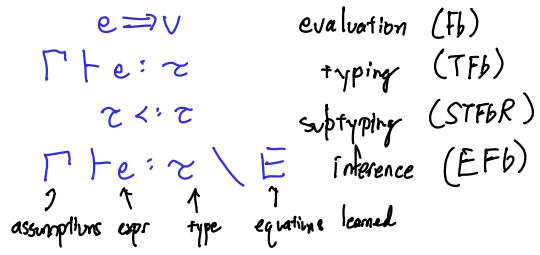 e ⇒ v evaluation (Fb)
Γ ⊢ e : τ typing (TFb)
τ <: τ subtyping (STFbR)
Γ ⊢ e : τ \ E inference (EFb)
assumptions expr type equations learned